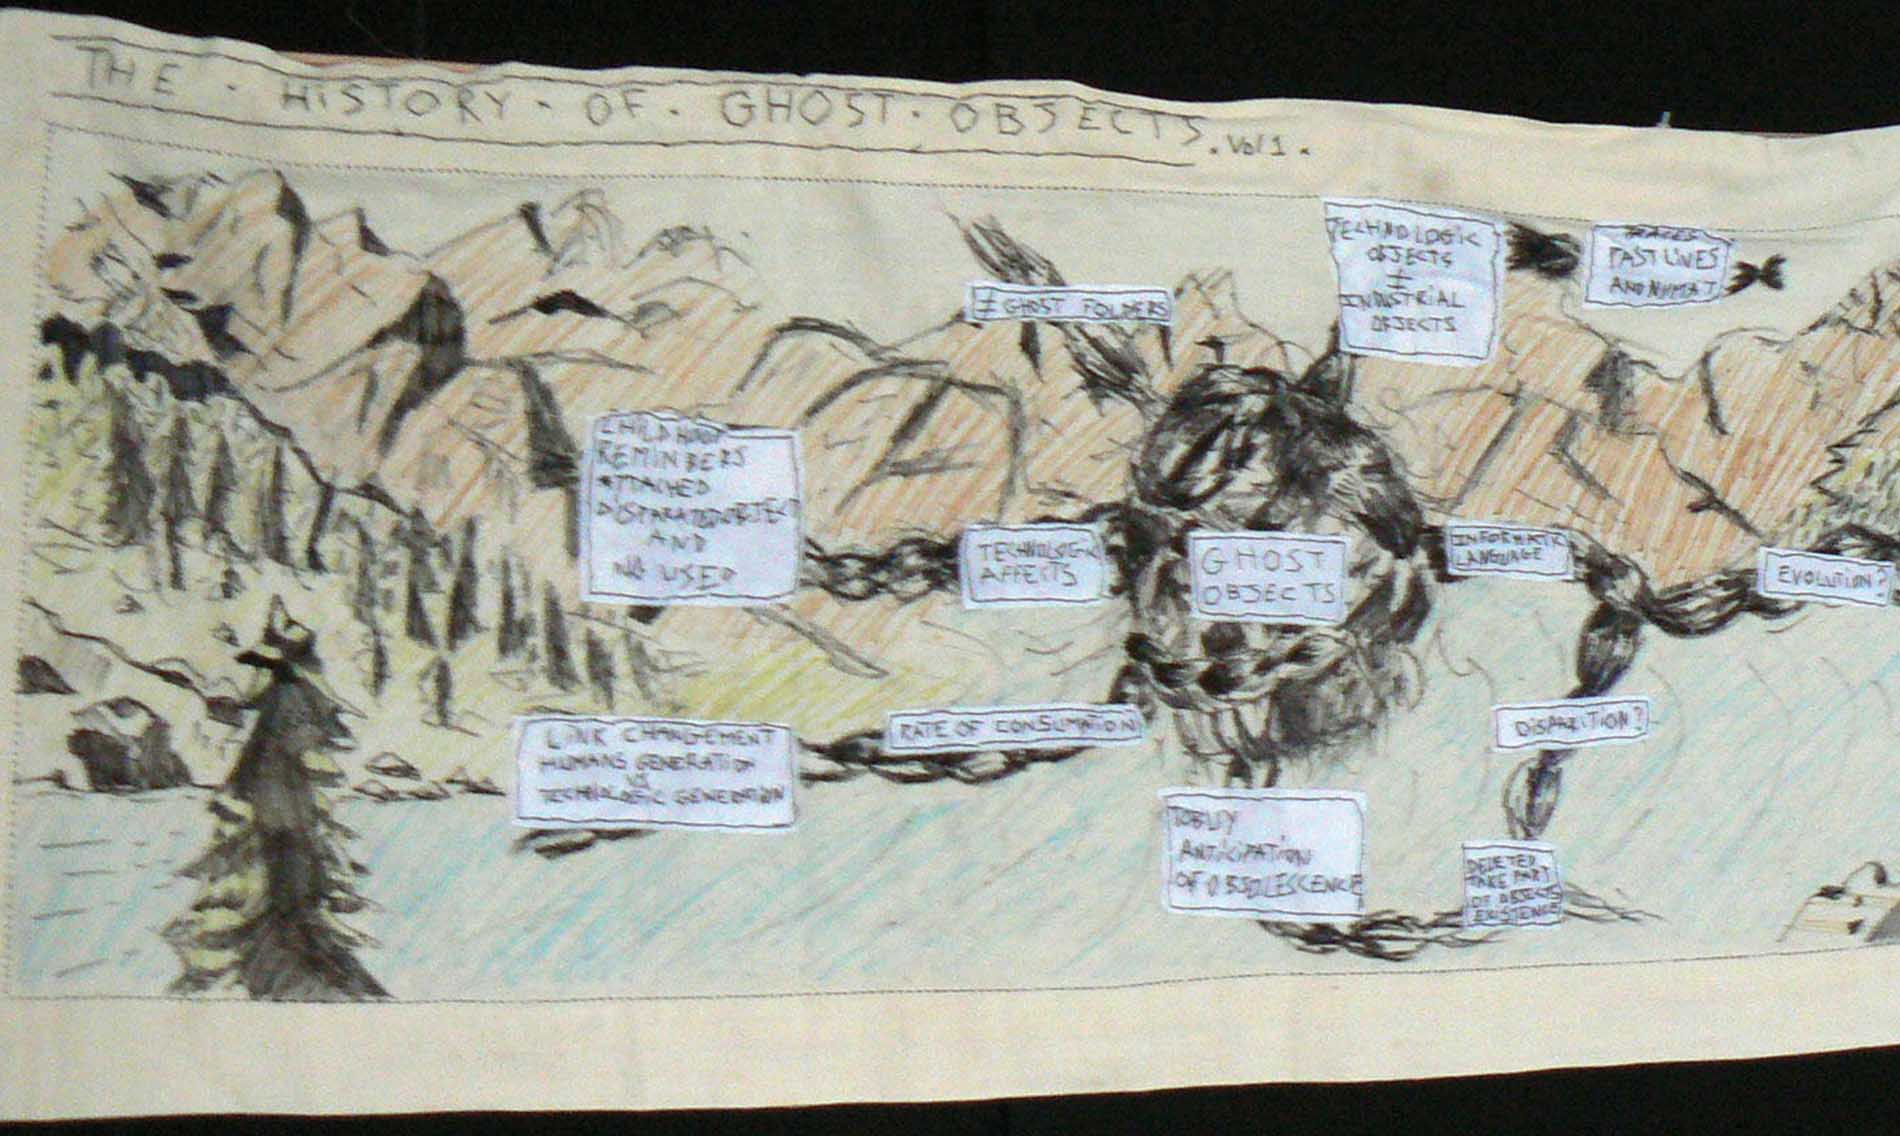 THE · HISTORY · OF · GHOST · OBJECTS . Vol 1 .
TECHNOLOGIC
OBJECTS
≠
INDUSTRIAL
OBJECTS
PAST LIVES
≠ GHOST FOLDERS
CHILDHOOD
REMINBERS
ATTACHED
AND
NO USED
TECHNOLOGIC
AFFECTS
GHOST
OBJECTS
INFORMATIC
LANGUAGE
EVOLUTION?
LINK CHANGEMENT
HUMANS GENERATION
VS
TECHNOLOGIC GENERATION
RATE OF CONSUMATION
DISPARITION?
TO BUY
ANTICIPATION
OF OBSOLESCENCE
DELETED
TAKE PART
OF OBJECTS
EXISTENCE